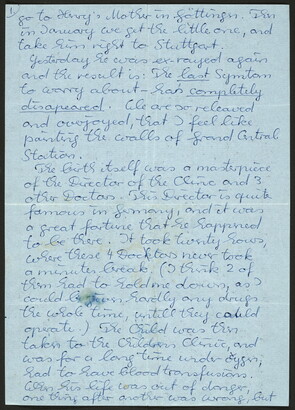 go to Henry's Mother in Göttingen. Then
in January we get the little one, and
take him right to Stuttgart.
Yesterday he was exrayed again
and the result is: The last Symtom
to worry about - has completely
disapeared. We are so releaved
and overjoyed, that I feel like
painting the walls of Grand Central
Station.
The birth itself was a masterpiece
of the Director of the Clinic and 3
other Doctors. This Director is quite
famous in Germany, and it was
a great fortune that he happened
to be there. It took twenty hours,
where these 4 Docktors never took
a minutes break, (I think 2 of
them had to hold me down, as I
could hardly any drugs
the whole time, untill they could
operate.) The Child was then
taken to the Childrens Clinic, and
was for a long time under oxygen,
had to have blood transfusions.
When his life was out of danger,
one thing after another was wrong, but